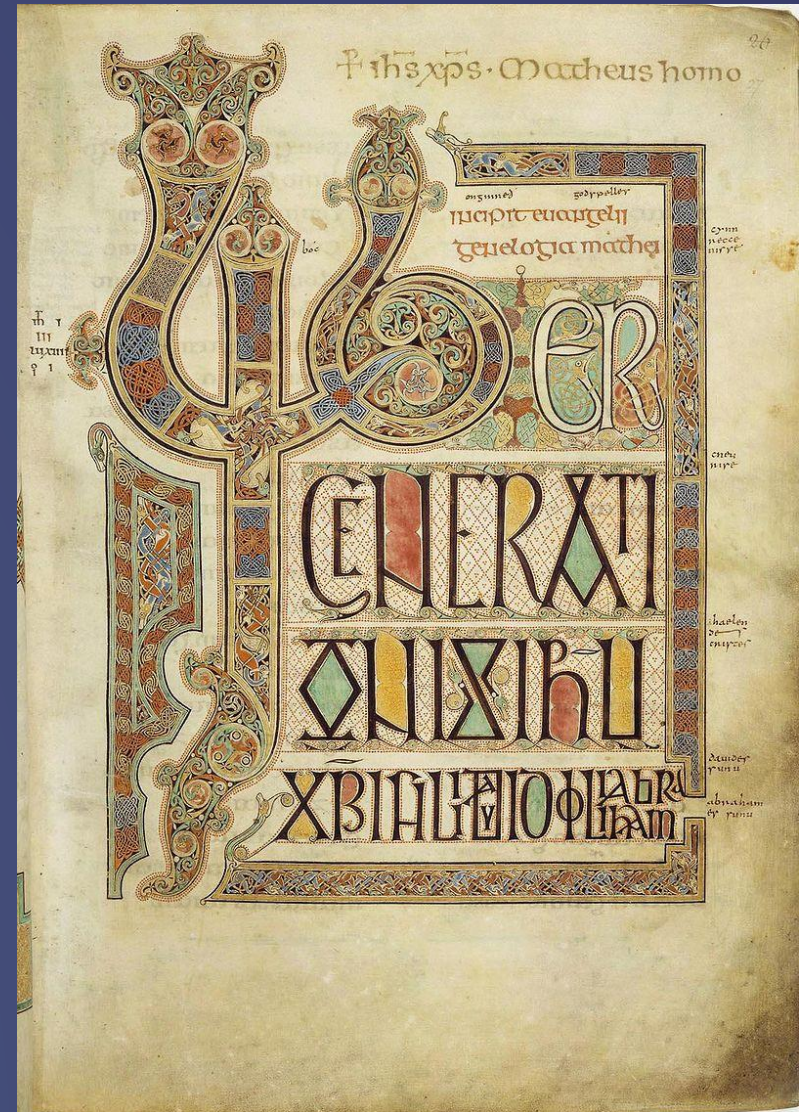 + ihs xps · Matheus homo
onginneð godspelles
incipit euangelii
genelogia mathei
boc
LIBER
GENERATI
ONIS IHU
XPI FILII DAUID FILII ABRA
HAM
cynn
recce
nisse
haelen
des
cristes
dauides
sunu
abraham
es sunu